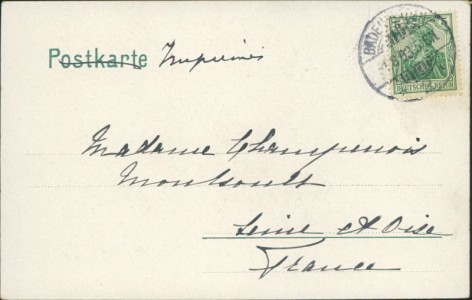 Postkarte Imprimés
DEUTSCHES REICH
Madame Champenois
Montsoult
Seine et Oise
France